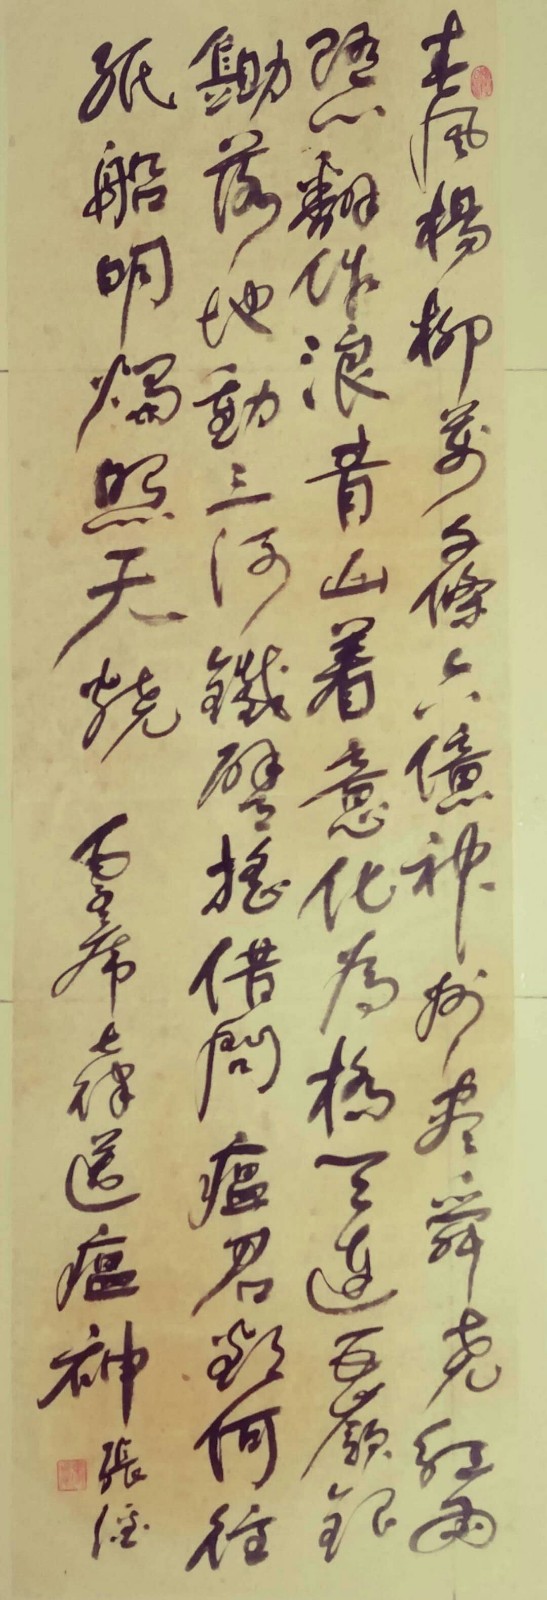 春風楊柳萬千條六億神州盡舜堯紅雨
隨心翻作浪青山着意化為橋天連五嶺銀
鋤落地動三河鐵臂搖借問瘟君欲何往
紙船明燭照天燒 毛主席七律送瘟神 張